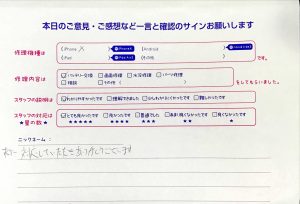 本日のご意見・ご感想など一言と確認のサインお願いします
修理機種は
iPhone
Android
iPad
その他
です。
修理内容は
バッテリー交換 画面修理 水没修理 パーツ修理
相談 その他
をしてもらいました。
スタッフの説明は
わかりやすかったです 理解できました 少しわかりにくかったです 難しかったです
スタッフの対応は
とても良かったです 良かったです 普通でした あまり良くなかったです 良くなかったです
★星の数★
★★★★★ ★★★★ ★★★ ★★ ★
ニックネーム:
対応していただきありがとうございます